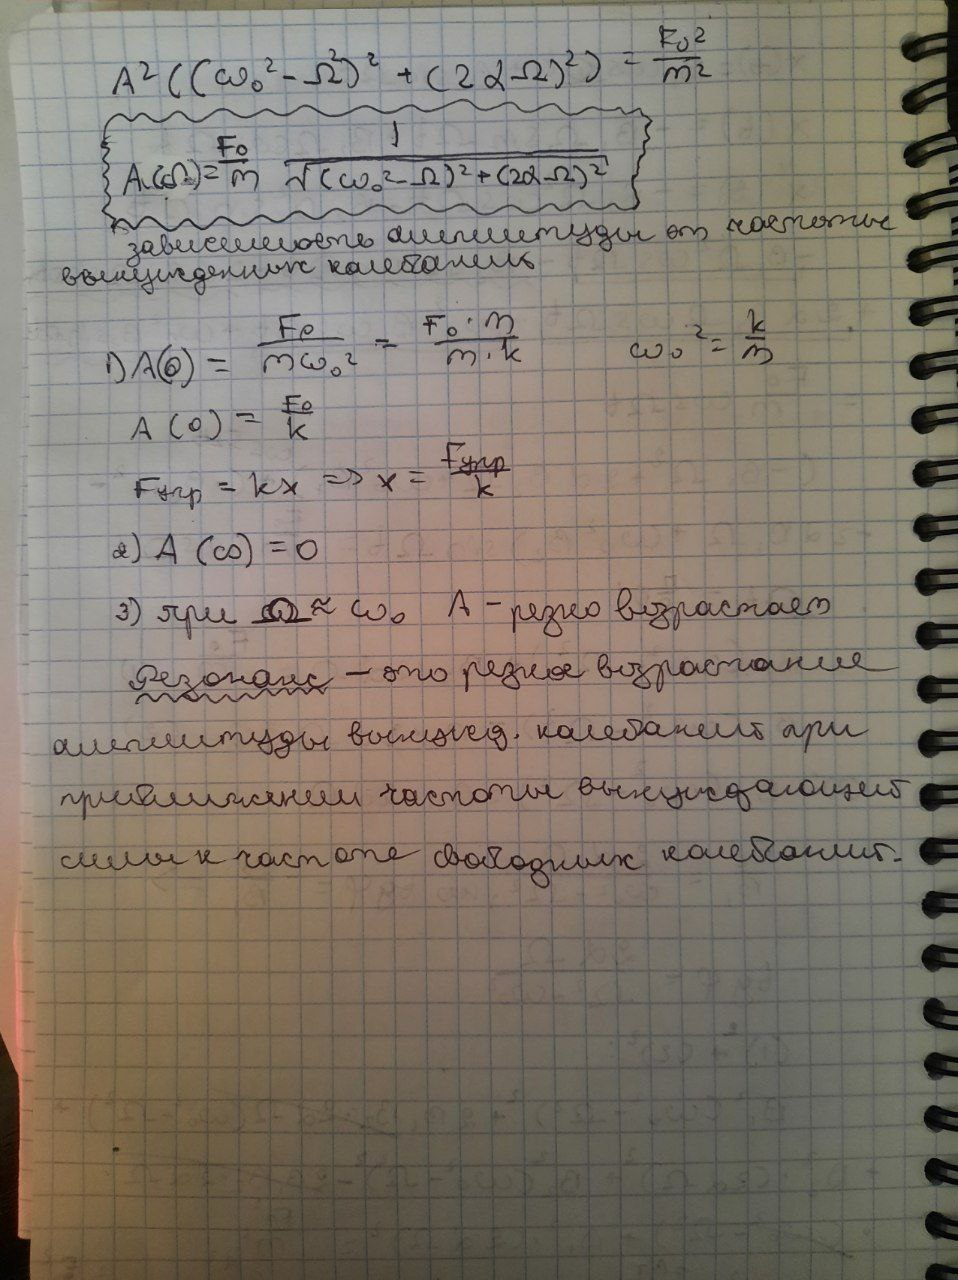 A²((ω₀² - Ω²)² + (2αΩ)²) = F₀²/m²
A(Ω) = F₀/m 1/√((ω₀² - Ω)² + (2αΩ)²)
зависимость амплитуды от частоты
вынужденных колебаний
1) A(0) = F₀/mω₀² = F₀·m/m·k ω₀² = k/m
A(0) = F₀/k
Fупр = kx => x = Fупр/k
2) A(∞) = 0
3) при Ω ≈ ω₀ A - резко возрастает
Резонанс - это резкое возрастание
амплитуды вынужд. колебаний при
приближении частоты вынуждающей
силы к частоте свободных колебаний.